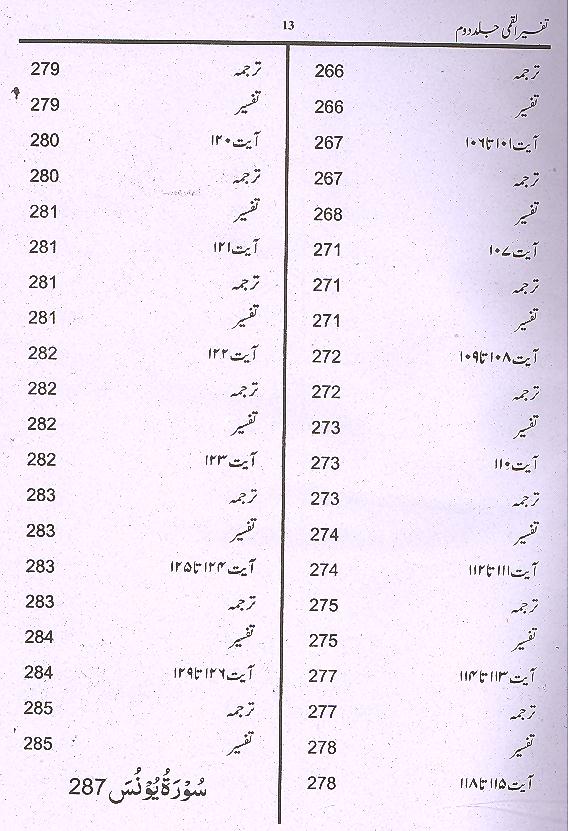 تفسیر القمی جلد دوم
13
ترجمہ 266
تفسیر 266
آیت ۱۰۱ تا ۱۰۶ 267
ترجمہ 267
تفسیر 268
آیت ۱۰۷ 271
ترجمہ 271
تفسیر 271
آیت ۱۰۸ تا ۱۰۹ 272
ترجمہ 272
تفسیر 273
آیت ۱۱۰ 273
ترجمہ 273
تفسیر 274
آیت ۱۱۱ تا ۱۱۲ 274
ترجمہ 275
تفسیر 275
آیت ۱۱۳ تا ۱۱۴ 277
ترجمہ 277
تفسیر 278
آیت ۱۱۵ تا ۱۱۸ 278
ترجمہ 279
تفسیر 279
آیت ۱۲۰ 280
ترجمہ 280
تفسیر 281
آیت ۱۲۱ 281
ترجمہ 281
تفسیر 281
آیت ۱۲۲ 282
ترجمہ 282
تفسیر 282
آیت ۱۲۳ 282
ترجمہ 283
تفسیر 283
آیت ۱۲۴ تا ۱۲۵ 283
ترجمہ 283
تفسیر 284
آیت ۱۲۶ تا ۱۲۹ 284
ترجمہ 285
تفسیر 285
سُوْرَۃُ یُوْنُسَ 287